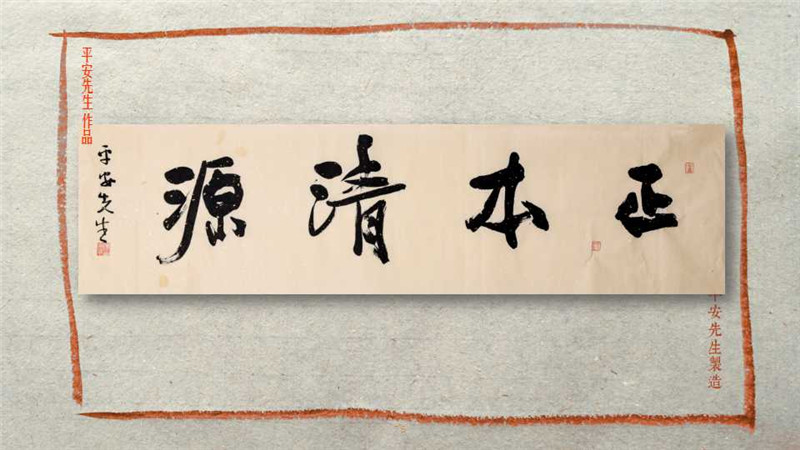 正本清源
平安先生
平安先生作品
平安先生製造